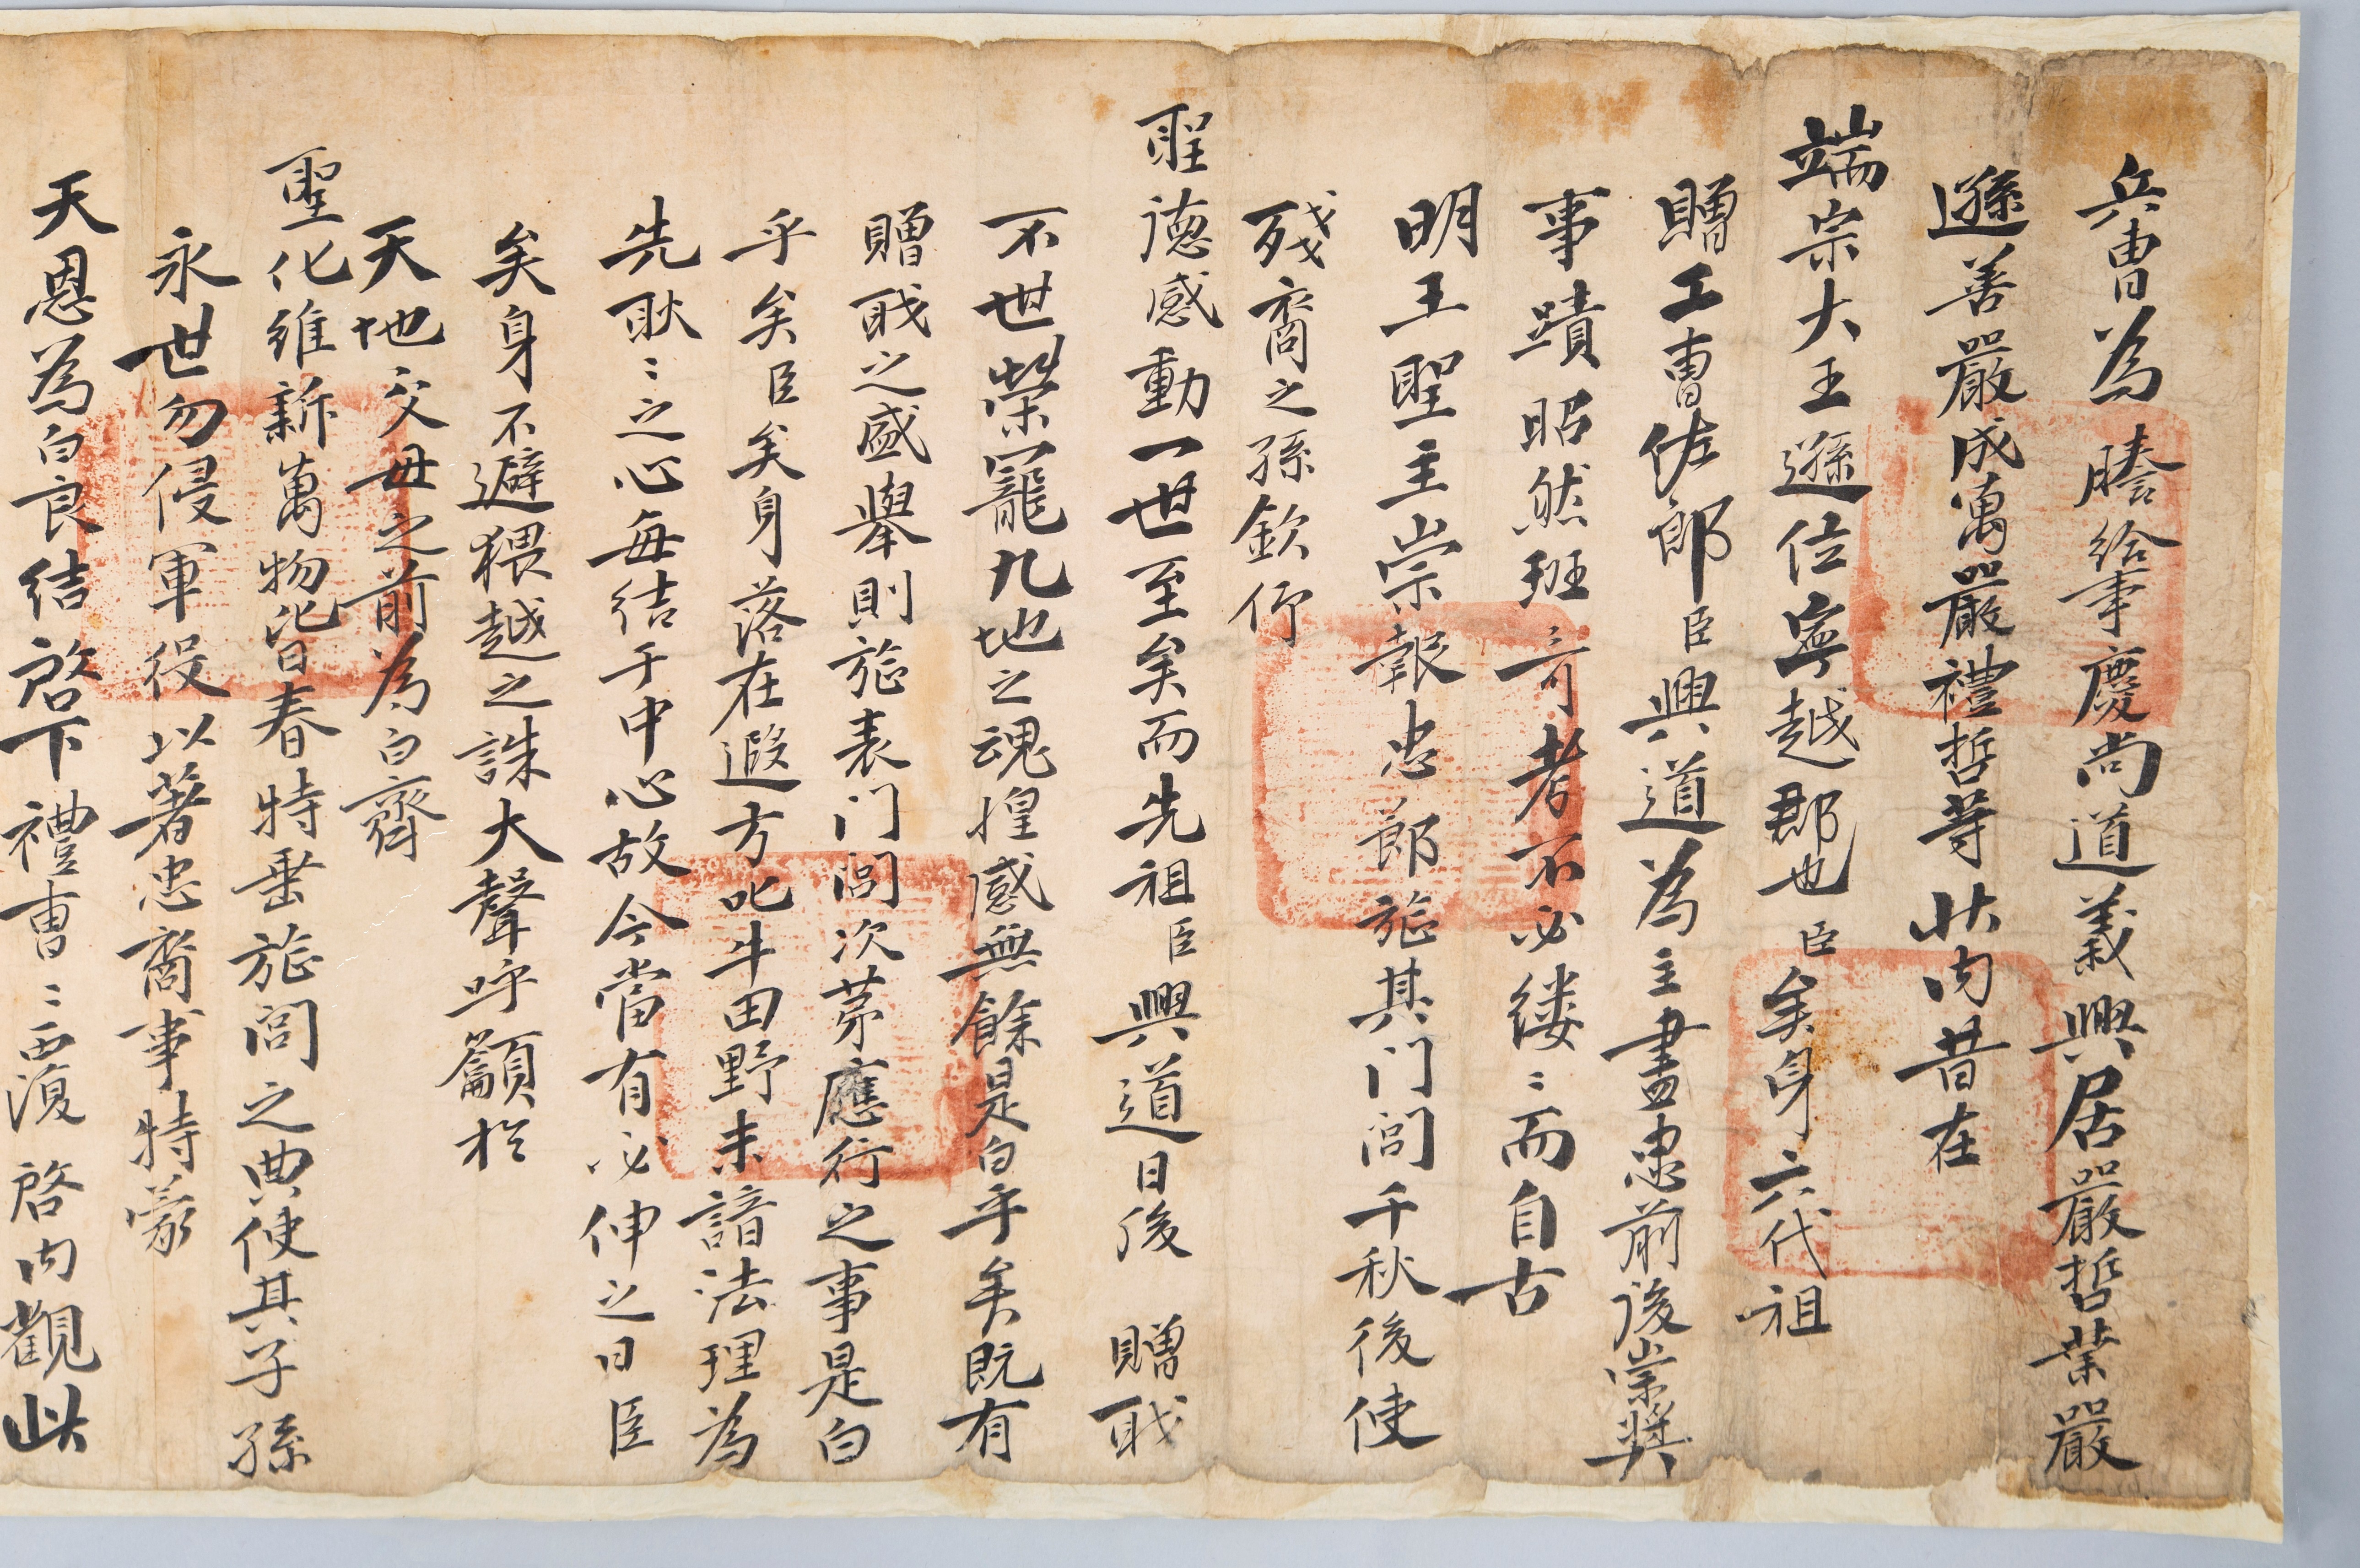 兵曹為謄給事慶尚道義興居嚴哲業嚴
遜善嚴成萬嚴禮哲等狀內昔在
端宗大王遜位寧越郡也臣矣身六代祖
贈工曹佐郎臣興道為主盡忠前後崇獎
事蹟昭然班〻可考不必縷〻而自古
明王聖主崇報忠節旌其门閭千秋後使
殘裔之孫欽仰
聖德感動一世至矣而先祖臣興道日後 贈職
不世榮寵九地之魂惶感無餘是白乎矣既有
贈職之盛舉則旌表门閭次苐應行之事是白
乎矣臣矣身落在遐方叱牛田野未諳法理為
先耿〻之心每結于中心故今當有必伸之日臣
矣身不避猥越之誅大聲呼籲於
天地父母之前為白齊
聖化維新萬物皆春特垂旌閭之典使其子孫
永世勿侵軍役以著忠裔事特蒙
天恩為白良結啓下禮曹〻西復 啓內觀此